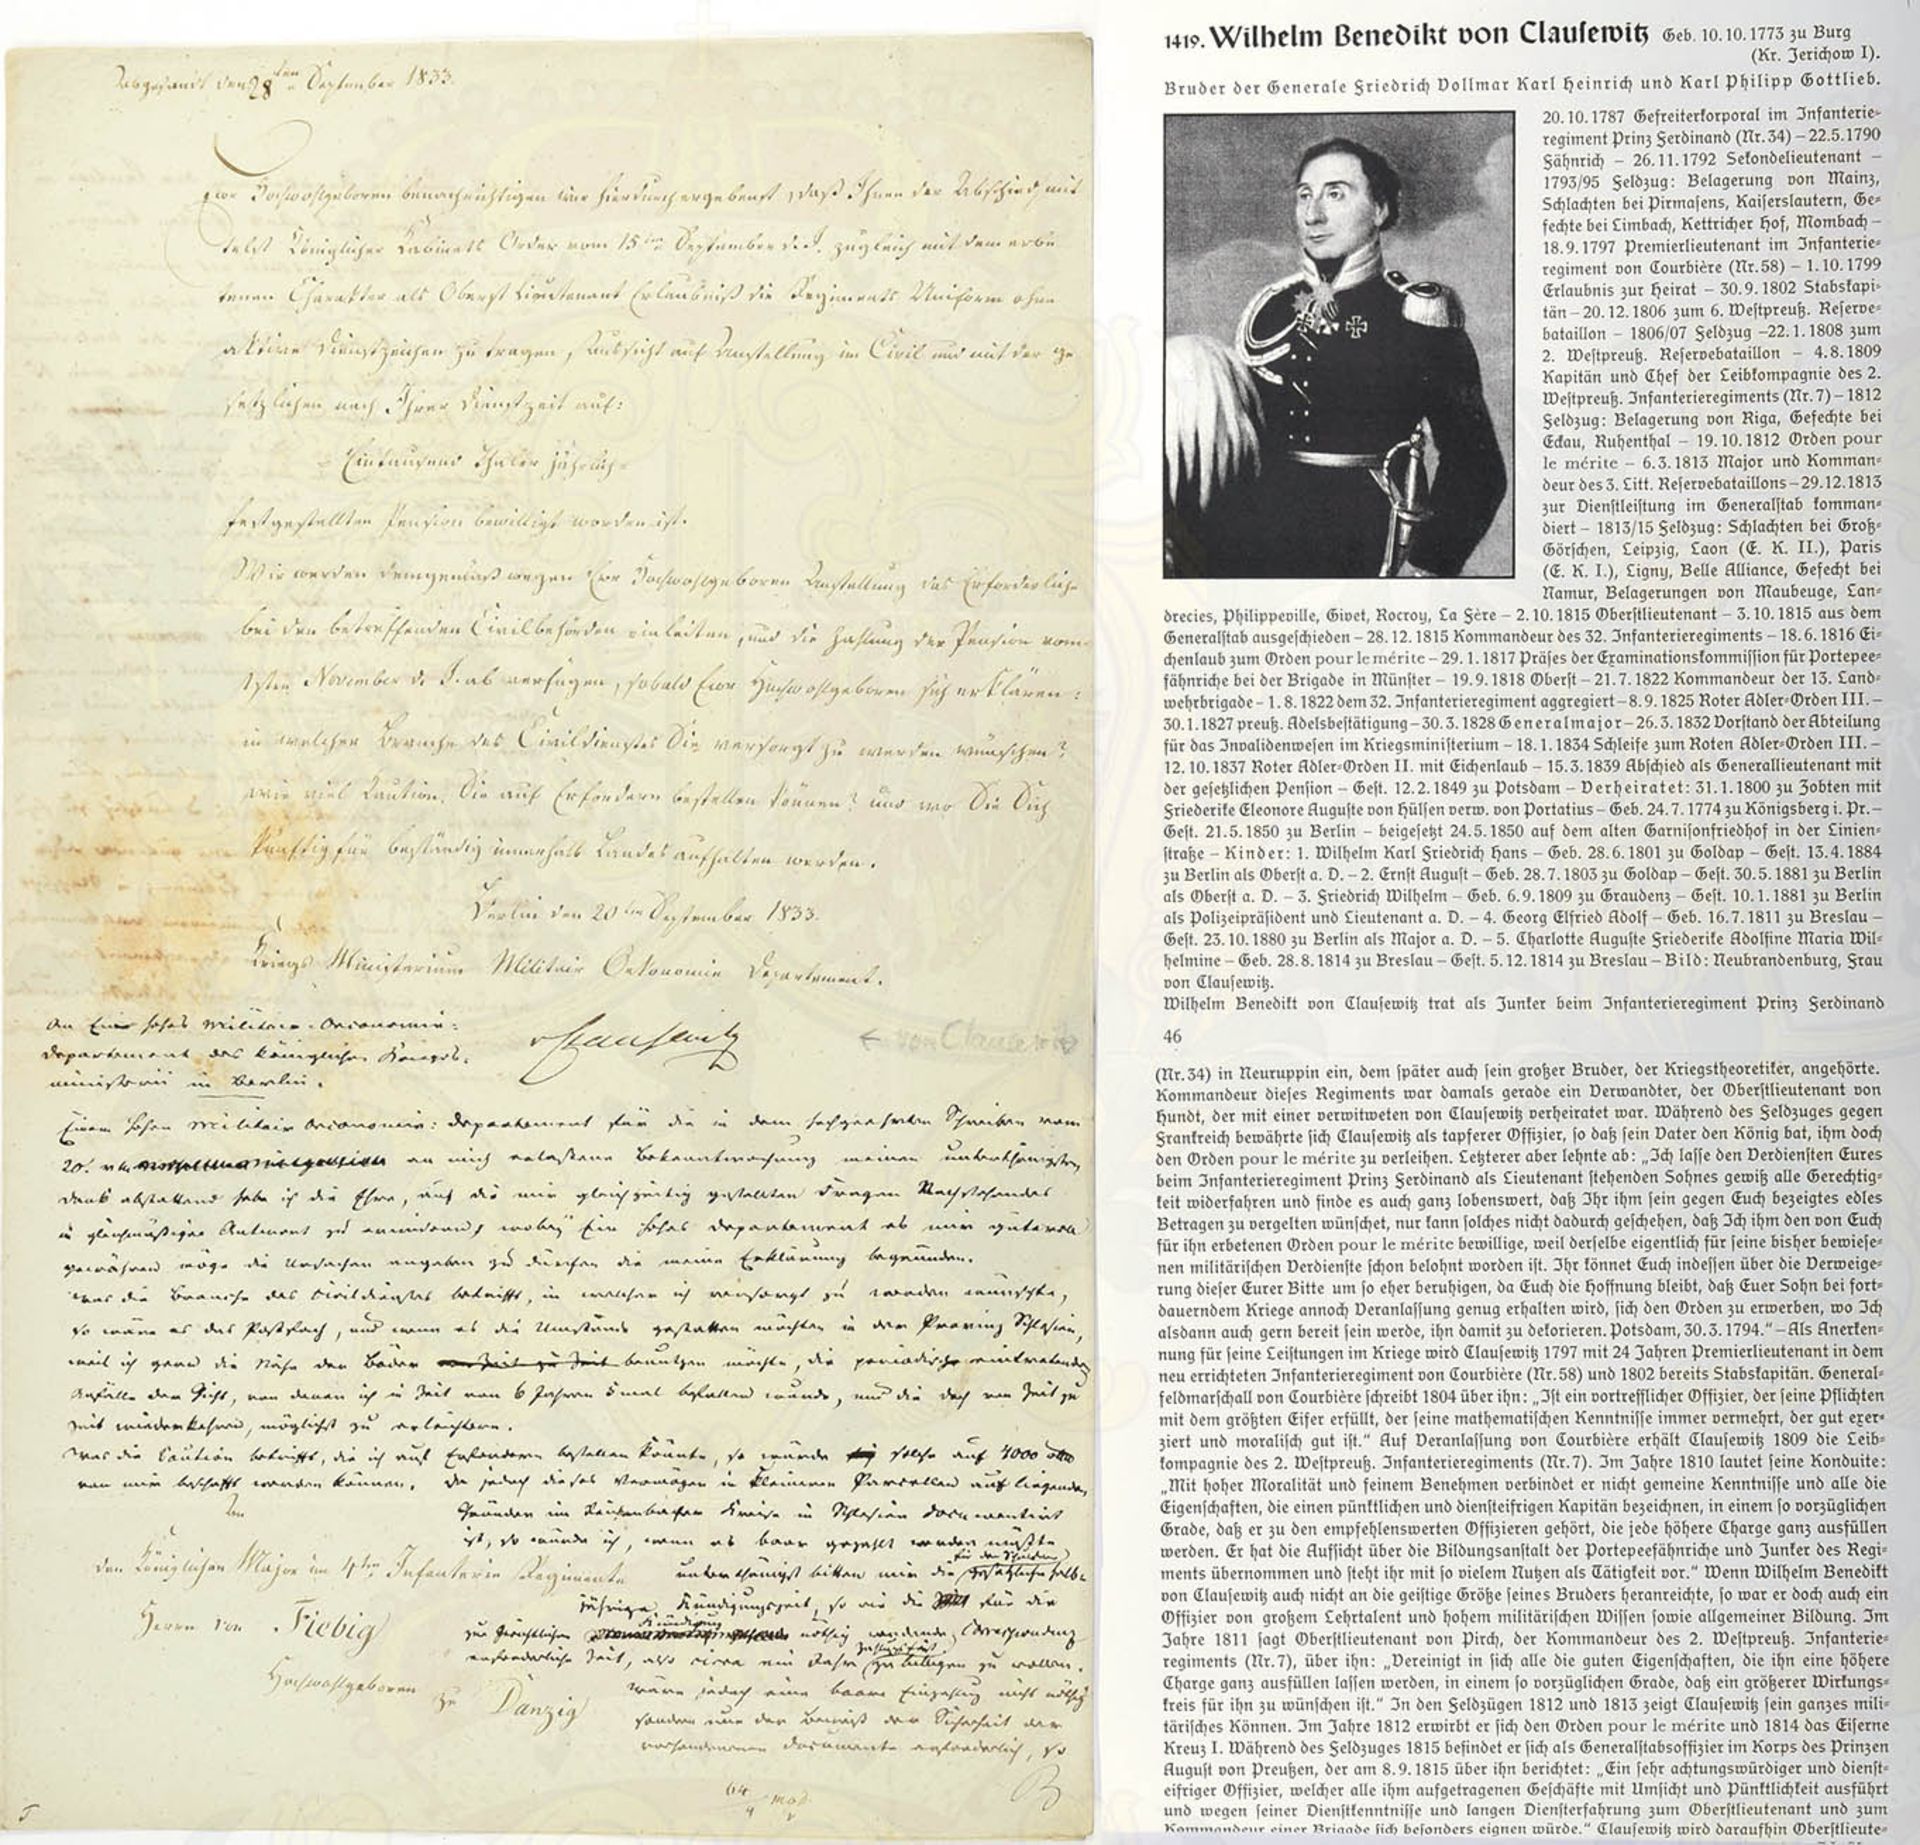 Abgesandt den 28ten September 1833.
Euer Hochwohlgeboren benachrichtigen wir hierdurch ergebenst, daß Ihnen der Abschied mit
telst Königlicher Kabinets Order vom 15ten September d. J. zugleich mit dem erbe
tenen Charakter als Oberst Lieutenant Erlaubniß die Regiments Uniform ohne
aktive Dienstzeichen zu tragen, Aussicht auf Anstellung im Civil und mit der ge
setzlichen nach Ihrer Dienstzeit auf:
= Eintausend Thaler jährlich =
festgestellten Pension bewilligt worden ist.
Wir werden demgemäß wegen Euer Hochwohlgeboren Anstellung das Erforderliche
bei den betreffenden Civilbehörden einleiten, und die Zahlung der Pension vom
1sten November d. J. ab verfügen, sobald Euer Hochwohlgeboren sich erklären:
in welcher Branche des Civildienstes Sie versorgt zu werden wünschen?
wie viel Kaution Sie auf Erfordern bestellen können? und wo Sie Sich
künftig für beständig innerhalb Landes aufhalten werden.
Berlin den 20ten September 1833.
Kriegs Ministerium Militair Oekonomie Departement.
vClausewitz
← von Clausewitz
An Ein hohes Militair-Oeconomie-
Departement des Königlichen Kriegs-
ministerii in Berlin.
Einem hohen Militair Oeconomie-Departement für die in dem hochgeehrten Schreiben vom
20. an mich erlassene Bekanntmachung meinen unterthänigsten
Dank abstattend habe ich die Ehre, auf die mir gleichzeitig gestellten Fragen Nachstehendes
in gleichmäßiger Antwort zu erwiedern, wobey Ein hohes Departement es mir
gewähren möge die Ursachen angeben zu dürfen die meine Erklärung begründen.
Was die Branche des Civildienstes betrifft, in welcher ich versorgt zu werden wünschte,
so wäre es das Postfach, und wenn es die Umstände gestatten möchten in der Provinz Schlesien,
weil ich gern die Nähe der Bäder benutzen möchte, die periodisch eintretenden
Anfälle der Gicht, von denen ich in Zeit von 6 Jahren 5mal befallen wurde, und die doch von Zeit zu
Zeit wiederkehren, möglichst zu erleichtern.
Was die Caution betrifft, die ich auf Erfordern bestellen könnte, so würde solche auf 4000
von mir beschafft werden können. Da jedoch dieses Vermögen in kleineren Parcellen auf liegenden
Gründen im Reichenbacher Kreise in Schlesien documentirt
ist, so würde ich, wenn es baar gezahlt werden müßte
unterthänigst bitten mir die gesetzliche halb-
jährige Kündigungszeit, so wie die für die
zur gerichtlichen Kündigung nöthig werdende Correspondenz
erforderliche Zeit, also circa ein Jahr zu bewilligen zu wollen.
Wäre jedoch eine baare Einzahlung nicht nöthig
sondern nur der Beweiß der Sicherheit der
vorhandenen Documente erforderlich, so
An
den Königlichen Major im 4ten Infanterie Regimente
Herrn von Fiebig
Hochwohlgeboren
zu Danzig
1419. Wilhelm Benedikt von Clausewitz Geb. 10.10.1773 zu Burg
(Kr. Jerichow I).
Bruder der Generale Friedrich Vollmar Karl Heinrich und Karl Philipp Gottlieb.
20.10.1787 Gefreiterkorporal im Infanterie-
regiment Prinz Ferdinand (Nr. 34) – 22.5.1790
Fähnrich – 26.11.1792 Sekondelieutenant –
1793/95 Feldzug: Belagerung von Mainz,
Schlachten bei Pirmasens, Kaiserslautern, Ge-
fechte bei Limbach, Kettricher Hof, Mombach –
18.9.1797 Premierlieutenant im Infanterie-
regiment von Courbière (Nr. 58) – 1.10.1799
Erlaubnis zur Heirat – 30.9.1802 Stabskapi-
tän – 20.12.1806 zum 6. Westpreuß. Reserve-
bataillon – 1806/07 Feldzug – 22.1.1808 zum
2. Westpreuß. Reservebataillon – 4.8.1809
Kapitän und Chef der Leibkompagnie des 2.
Westpreuß. Infanterieregiments (Nr. 7) – 1812
Feldzug: Belagerung von Riga, Gefechte bei
Eckau, Ruhenthal – 19.10.1812 Orden pour
le mérite – 6.3.1813 Major und Komman-
deur des 3. Litt. Reservebataillons – 29.12.1813
zur Dienstleistung im Generalstab komman-
diert – 1813/15 Feldzug: Schlachten bei Groß-
Görschen, Leipzig, Laon (E. K. II.), Paris
(E. K. I.), Ligny, Belle Alliance, Gefecht bei
Namur, Belagerungen von Maubeuge, Lan-
drecies, Philippeville, Givet, Rocroy, La Fère – 2.10.1815 Oberstlieutenant – 3.10.1815 aus dem
Generalstab ausgeschieden – 28.12.1815 Kommandeur des 32. Infanterieregiments – 18.6.1816 Ei-
chenlaub zum Orden pour le mérite – 29.1.1817 Präses der Examinationskommission für Portepee-
fähnriche bei der Brigade in Münster – 19.9.1818 Oberst – 21.7.1822 Kommandeur der 13. Land-
wehrbrigade – 1.8.1822 dem 32. Infanterieregiment aggregiert – 8.9.1825 Roter Adler-Orden III. –
30.1.1827 preuß. Adelsbestätigung – 30.3.1828 Generalmajor – 26.3.1832 Vorstand der Abteilung
für das Invalidenwesen im Kriegsministerium – 18.1.1834 Schleife zum Roten Adler-Orden III. –
12.10.1837 Roter Adler-Orden II. mit Eichenlaub – 15.3.1839 Abschied als Generallieutenant mit
der gesetzlichen Pension – Gest. 12.2.1849 zu Potsdam – Verheiratet: 31.1.1800 zu Zobten mit
Friederike Eleonore Auguste von Hülsen verw. von Portatius – Geb. 24.7.1774 zu Königsberg i. Pr. –
Gest. 21.5.1850 zu Berlin – beigesetzt 24.5.1850 auf dem alten Garnisonfriedhof in der Linien-
straße – Kinder: 1. Wilhelm Karl Friedrich Hans – Geb. 28.6.1801 zu Goldap – Gest. 13.4.1884
zu Berlin als Oberst a. D. – 2. Ernst August – Geb. 28.7.1803 zu Goldap – Gest. 30.5.1881 zu Berlin
als Oberst a. D. – 3. Friedrich Wilhelm – Geb. 6.9.1809 zu Graudenz – Gest. 10.1.1881 zu Berlin
als Polizeipräsident und Lieutenant a. D. – 4. Georg Elfried Adolf – Geb. 16.7.1811 zu Breslau –
Gest. 23.10.1880 zu Berlin als Major a. D. – 5. Charlotte Auguste Friederike Adolfine Maria Wil-
helmine – Geb. 28.8.1814 zu Breslau – Gest. 5.12.1814 zu Breslau – Bild: Neubrandenburg, Frau
von Clausewitz.
Wilhelm Benedikt von Clausewitz trat als Junker beim Infanterieregiment Prinz Ferdinand
46
(Nr. 34) in Neuruppin ein, dem später auch sein großer Bruder, der Kriegstheoretiker, angehörte.
Kommandeur dieses Regiments war damals gerade ein Verwandter, der Oberstlieutenant von
Hundt, der mit einer verwitweten von Clausewitz verheiratet war. Während des Feldzuges gegen
Frankreich bewährte sich Clausewitz als tapferer Offizier, so daß sein Vater den König bat, ihm doch
den Orden pour le mérite zu verleihen. Letzterer aber lehnte ab: „Ich lasse den Verdiensten Eures
beim Infanterieregiment Prinz Ferdinand als Lieutenant stehenden Sohnes gewiß alle Gerechtig-
keit widerfahren und finde es auch ganz lobenswert, daß Ihr ihm sein gegen Euch bezeigtes edles
Betragen zu vergelten wünschet, nur kann solches nicht dadurch geschehen, daß Ich ihm den von Euch
für ihn erbetenen Orden pour le mérite bewillige, weil derselbe eigentlich für seine bisher bewiese-
nen militärischen Verdienste schon belohnt worden ist. Ihr könnet Euch indessen über die Verweige-
rung dieser Eurer Bitte um so eher beruhigen, da Euch die Hoffnung bleibt, daß Euer Sohn bei fort-
dauerndem Kriege annoch Veranlassung genug erhalten wird, sich den Orden zu erwerben, wo Ich
alsdann auch gern bereit sein werde, ihn damit zu dekorieren. Potsdam, 30.3.1794.“ – Als Anerken-
nung für seine Leistungen im Kriege wird Clausewitz 1797 mit 24 Jahren Premierlieutenant in dem
neu errichteten Infanterieregiment von Courbière (Nr. 58) und 1802 bereits Stabskapitän. General-
feldmarschall von Courbière schreibt 1804 über ihn: „Ist ein vortrefflicher Offizier, der seine Pflichten
mit dem größten Eifer erfüllt, der seine mathematischen Kenntnisse immer vermehrt, der gut exer-
ziert und moralisch gut ist.“ Auf Veranlassung von Courbière erhält Clausewitz 1809 die Leib-
kompagnie des 2. Westpreuß. Infanterieregiments (Nr. 7). Im Jahre 1810 lautet seine Konduite:
„Mit hoher Moralität und feinem Benehmen verbindet er nicht gemeine Kenntnisse und alle die
Eigenschaften, die einen pünktlichen und diensteifrigen Kapitän bezeichnen, in einem so vorzüglichen
Grade, daß er zu den empfehlenswerten Offizieren gehört, die jede höhere Charge ganz ausfüllen
werden. Er hat die Aufsicht über die Bildungsanstalt der Portepeefähnriche und Junker des Regi-
ments übernommen und steht ihr mit so vielem Nutzen als Tätigkeit vor.“ Wenn Wilhelm Benedikt
von Clausewitz auch nicht an die geistige Größe seines Bruders heranreichte, so war er doch auch ein
Offizier von großem Lehrtalent und hohem militärischen Wissen sowie allgemeiner Bildung. Im
Jahre 1811 sagt Oberstlieutenant von Pirch, der Kommandeur des 2. Westpreuß. Infanterie-
regiments (Nr. 7), über ihn: „Vereinigt in sich alle die guten Eigenschaften, die ihn eine höhere
Charge ganz ausfüllen lassen werden, in einem so vorzüglichen Grade, daß ein größerer Wirkungs-
kreis für ihn zu wünschen ist.“ In den Feldzügen 1812 und 1813 zeigt Clausewitz sein ganzes mili-
tärisches Können. Im Jahre 1812 erwirbt er sich den Orden pour le mérite und 1814 das Eiserne
Kreuz I. Während des Feldzuges 1815 befindet er sich als Generalstabsoffizier im Korps des Prinzen
August von Preußen, der am 8.9.1815 über ihn berichtet: „Ein sehr achtungswürdiger und dienst-
eifriger Offizier, welcher alle ihm aufgetragenen Geschäfte mit Umsicht und Pünktlichkeit ausführt
und wegen seiner Dienstkenntnisse und langen Diensterfahrung zum Oberstlieutenant und zum
Kommandeur einer Brigade sich besonders eignen würde.“ Clausewitz wird daraufhin Oberstlieute-